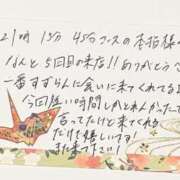 21時 15分 45分コースの本指様
なんと5回目の来店!! ありがとう
一番すずらんに会いに来てくれてる
今回短い時間しかとれんかったて
言ってたけど来てくれる
だけで嬉しいです!
また来て下さい!